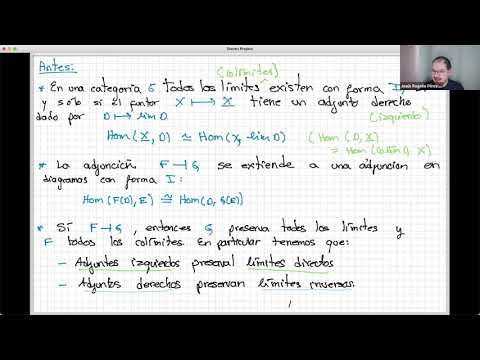 Antes:
(colímites)
* En una categoría G todos los límites existen con forma I,
y solo si El funtor X ⟼ X tiene un adjunto derecho
(izquierdo)
dado por D ⟼ lim D
Hom(X, D) ≅ Hom(X, lim D) (Hom(D, X)
≅ Hom(colim D, X)
* La adjunción F ⊣ G, se extiende a una adjuncion en
diagramas con forma I:
Hom(F(D), E) ≅ Hom(D, G(E))
* Sí F ⊣ G, entonces G preserva todos los límites y
F todos los colímites. En particular tenemos que:
- Adjuntos izquierdos preservan límites directos
- Adjuntos derechos preservan límites inversos.